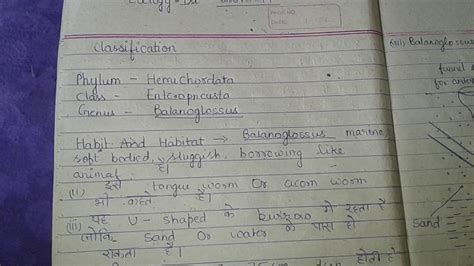 Classification
Phylum - Hemichordata
Class - Enteropneusta
Genus - Balanoglossus
Habit And Habitat → Balanoglossus marine
soft bodied, sluggish, borrowing like
animal है।
(ii) इसे tongue worm or acorn worm
भी कहते हैं।
(iii) यह U - shaped के में रहता है
जोकि sand or water के पास हो
सकता है।
होती है
(iii) Balanoglossus
sand